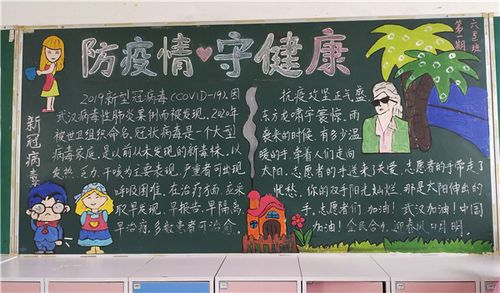 防疫情守健康
六(3)班
第一期
新冠病毒
2019新型冠病毒(COVID-19),因
武汉病毒性肺炎案例而被发现,2020年
被世卫组织命名,冠状病毒是一个大型
病毒家庭,是以前从未发现的新毒株,以
发热、乏力、干咳为主要表现,严重者可出现
呼吸困难,在治疗方面,应采
取早发现、早报告、早隔离、
早治疗,多数患者可治愈。
抗疫攻坚正气盛
东方龙啸宇寰惊,雨
袭来的时候,有多少温
暖的手,牵着人们走向
太阳,志愿者的手送来了关爱,志愿者的手带走了
忧愁,你的双手阳光灿烂,那是太阳伸出的
手,志愿者们,加油!武汉加油!中国
加油!全民合力,迎春风